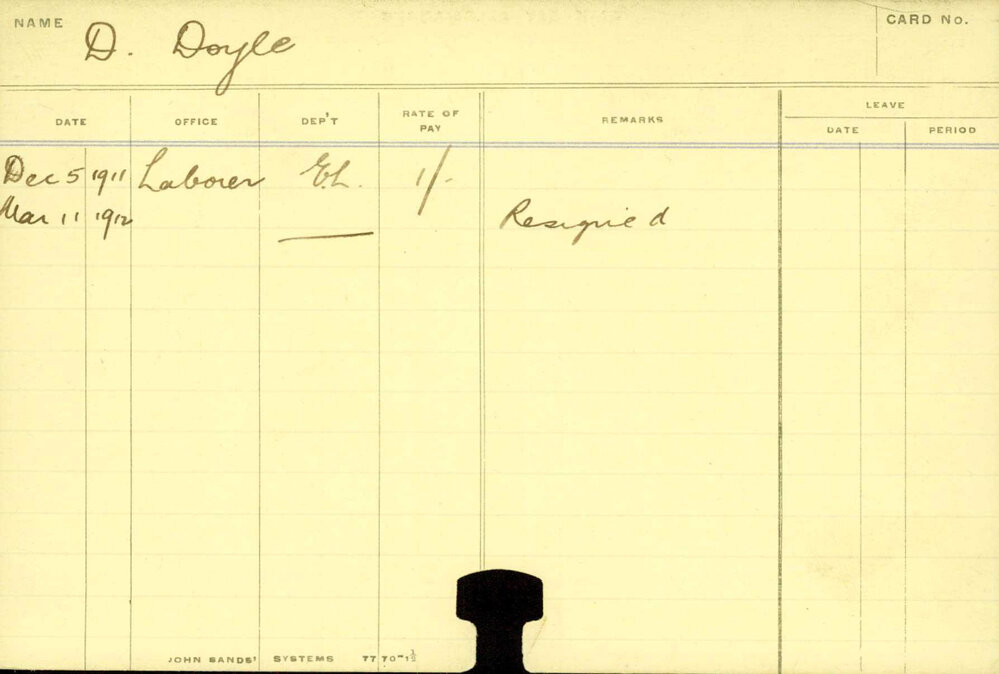 NAME D. Doyle CARD No.
DATE OFFICE DEP'T RATE OF PAY REMARKS LEAVE
DATE PERIOD
Dec 5 1911 Laborer E.L. 1/-
Mar 11 1912 Resigned
JOHN SANDS' SYSTEMS 7770-1½